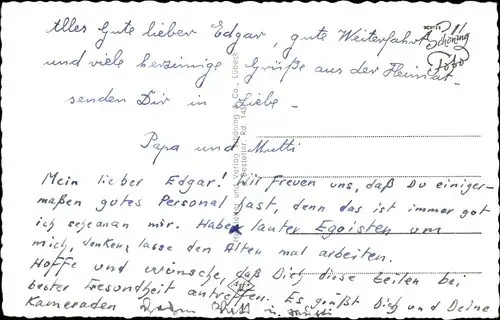 Alles Gute lieber Edgar, gute Weiterfahrt
und viele herzinnige Grüße aus der Heimat
senden Dir in Liebe -
Papa und Mutti
Mein lieber Edgar! Wir freuen uns, daß Du einiger-
maßen gutes Personal hast, denn das ist immer gut
ich sehe an mir. Habe lauter Egoisten um
mich, denken, lasse den Alten mal arbeiten.
Hoffe und wünsche, daß Dich diese Zeilen bei
bester Gesundheit antreffen. Es grüßt Dich und Deine
Kameraden
Schöning
Foto
Verlag Schöning & Co., Lübeck
Bestellnr. Rd.